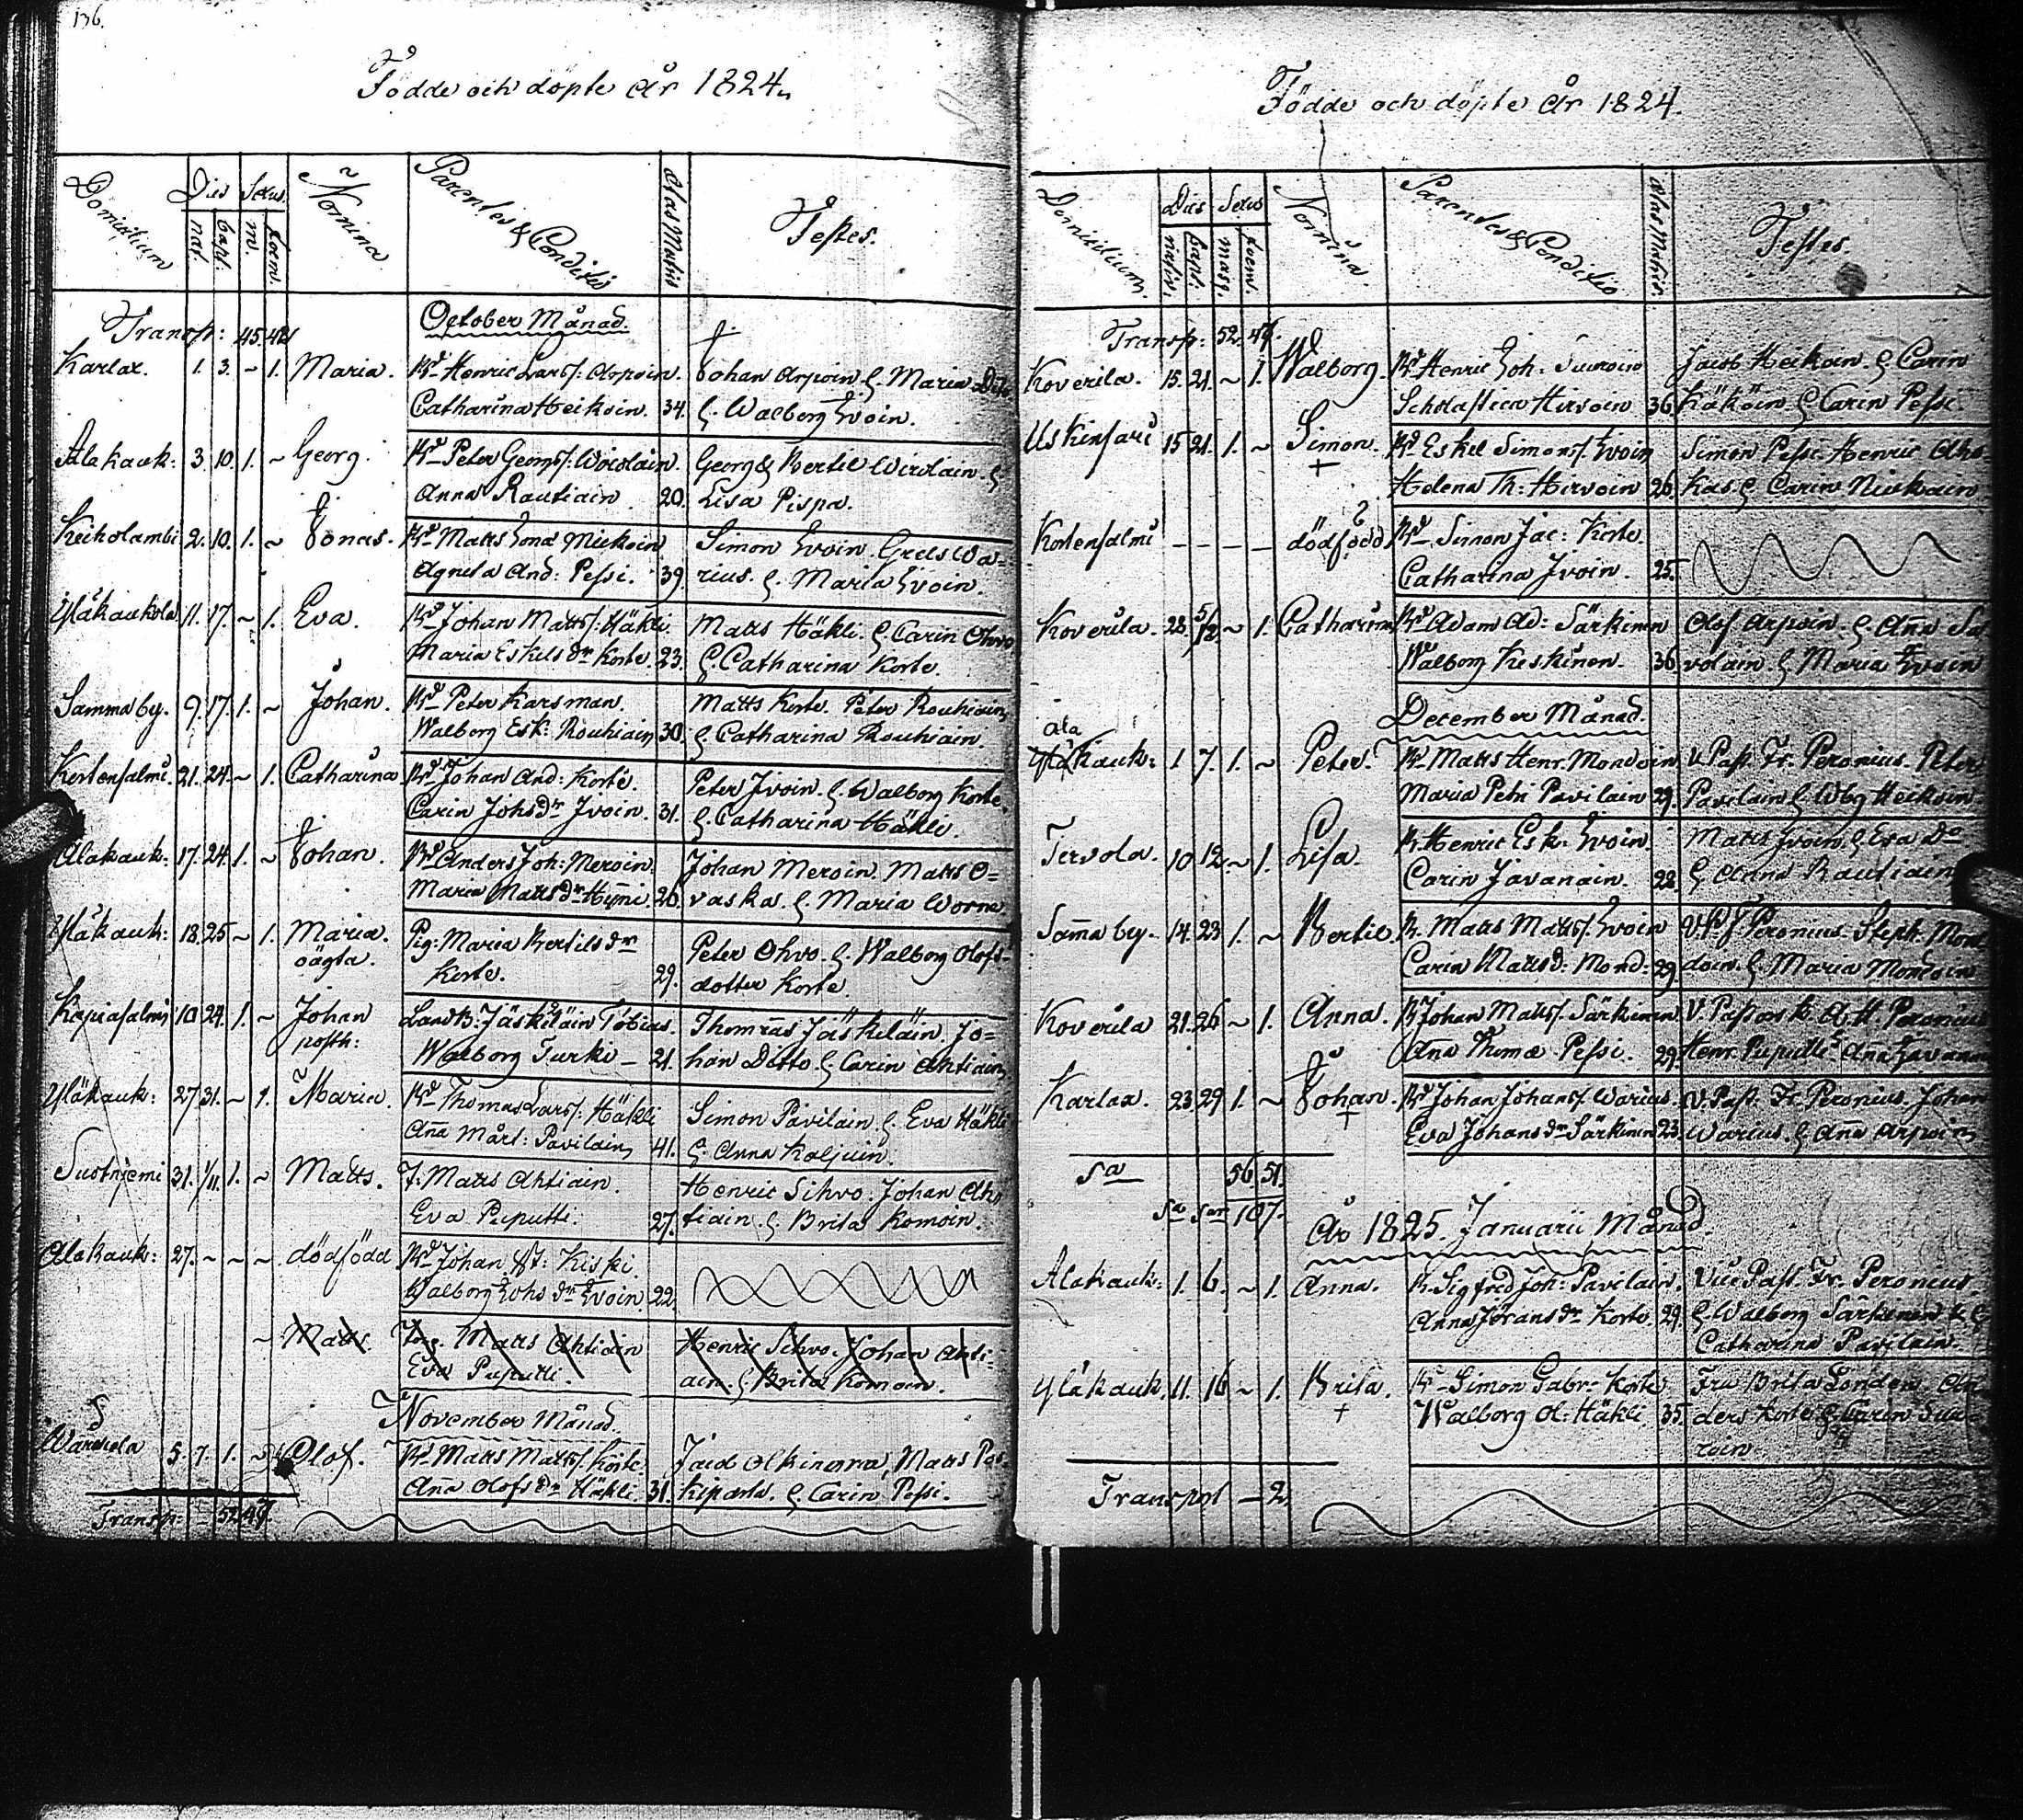 136.
Födde och döpte År 1824.
Domicilium Dies nat. bapt. Sexus. m. foem. Nomina Parentes & Conditio Ætas Matris Testes.
Transp: 45. October Månad.
Karlax. 1. 3. ~ 1. Maria. Bd Henric Larss: Arpoin. Johan Arpoin & Maria Dito
Catharina Heikoin. 34. & Walborg Ivoin.
Alakauk: 3. 10. 1. ~ Georg. Bd Peter Georgs: Wirolain. Georg & Bertil Wirolain &
Anna Rautiain 20. Lisa Pispa.
Keiholambi 2. 10. 1. ~ Jonas. Bd Matts Jona Mickoin Simon Ivoin. Greels Wa=
Agneta And: Pessi. 39. rius. & Maria Ivoin.
Yläkaukola 11. 17. ~ 1. Eva. Bd Johan Matts: Häkli. Matts Häkli. & Carin Ohvo
Maria Eskels dr Korte. 23. & Catharina Korte.
Samma by. 9. 17. 1. ~ Johan. Bd Peter Karsman. Matts Korte. Peter Rouhiain
Walborg Esk: Rouhiain 30. & Catharina Rouhiain.
Kortensalmi. 21. 24. ~ 1. Catharina Bd Johan And: Korte. Peter Ivoin. & Walborg Korte.
Carin Johs dr Ivoin. 31. & Catharina Häkli.
Alakauk: 17. 24. 1. ~ Johan. Bd Anders Joh: Meroin. Johan Meroin. Matts O=
Maria Matts dr Hÿni. 26. vaska. & Maria Worna.
Yläkauk: 18. 25 ~ 1. Maria. Pig: Maria Bertils dr Peter Ohvo. & Walborg Olofs-
oägta. Korte. 29. dotter Korte.
Kapiasalmi 10 24. 1. ~ Johan Landb: Jäskeläin Tobias. Thomas Jäskeläin. Jo=
posth: Walborg Turki – 21. han Ditto. & Carin Ahtiain
Yläkauk: 27 31. ~ 1. Maria. Bd Thomas Larss: Häkli Simon Pavilain. & Eva Häkli
Aña Mårt: Pavilain 41. & Anna Kaljuin.
Suotniemi 31. 1/11. 1. ~ Matts. T: Matts Ahtiain. Henric Sihvo. Johan Ah
Eva Puputti. 27. tiain & Brita Komoin.
Alakauk: 27. ~ ~ ~ dödfödd Bd Johan Kiski.
Walborg Johs dr Ivoin. 22.
~ Matts. Matts Ahtiain Henric Sihvo. Johan Ahti=
Eva Puputti. ain. & Brita Komoin.
November Månad.
5. 7. 1. ~ Olof. Bd Matts Matts: Korte. Matts Pas
Aña Olofs dr Häkli. 31. & Carin Pessi.
Transp: 52.
Födde och döpte År 1824.
Domicilium. Dies nativ. bapt. Sexus masq. foem. Nomina. Parentes & Conditio Ætas Matris. Testes.
Transp: 52.
Koverila. 15. 21. ~ 1. Walborg. Bd Henric Joh: Suuroin Jacob Heikoin. & Carin
Scholastica Hirvoin 36 Käköin & Carin Pessi.
Uskinsari 15 21. 1. ~ Simon. Bd Eskel Simons: Ivoin Simon Pessi. Henric Aho=
Helena Th: Hirvoin 26. kas & Carin
Kortensalmi – – – – dödfödd Bd Simon Jac: Korte.
Catharina Ivoin. 25.
Koverila. 28. 5/12 ~ 1. Catharina Bd Adam Ad: Särkinen Olof Arpoin. & Aña Sa
Walborg Keskinen. 36 volain & Maria Ivoin
December Månad.
ala
Yläkauk: 1. 7. 1. ~ Peter. Bd Matts Henr. Mondoin V. Past. Fr. Peronius. Peter
Maria Petri Pavilain 29. Pavilain & Wbg Heikoin
Tervola. 10 12. ~ 1. Lisa. B. Henric Esk: Ivoin. Matts Ivoin. & Eva Do
Carin Javanain. 28 & Anna Rautiain
Sam̃a by. 14. 23 1. ~ Bertil B. Matts Matts: Ivoin V.P. F. Peronius. Steph. Mon
Carin Matts d: Mond: 29. doin. & Maria Mondoin
Koverila 21. 26 ~ 1. Anna. B. Johan Matts: Särkinen V. Pastors Peronius
Aña Thomæ Pessi. 29. Henr. Puputti & Aña Javanain
Karlax. 23 29 1. ~ Johan. Bd Johan Johans: Warius. V. Past. Fr. Peronius. Johan
Eva Johans dr Särkinen 23. Warius. & Aña Arpoin
Sa 56 51.
Sa Sar 107.
År 1825. Januarii Månad.
Alakauk: 1. 6. ~ 1. Anna. B. Sigfred Joh: Pavilain. Vice Past. Fr. Peronius.
Anna Jörans dr Korte 29. & Walborg Särkinen &
Catharina Pavilain.
Yläkauk. 11. 16 ~ 1. Brita. Bd Simon Gabr: Korte. Fru Brita Londen. An
Walborg Ol: Häkli. 35. ders Korte & Carin Suu=
roin
Transport – 2